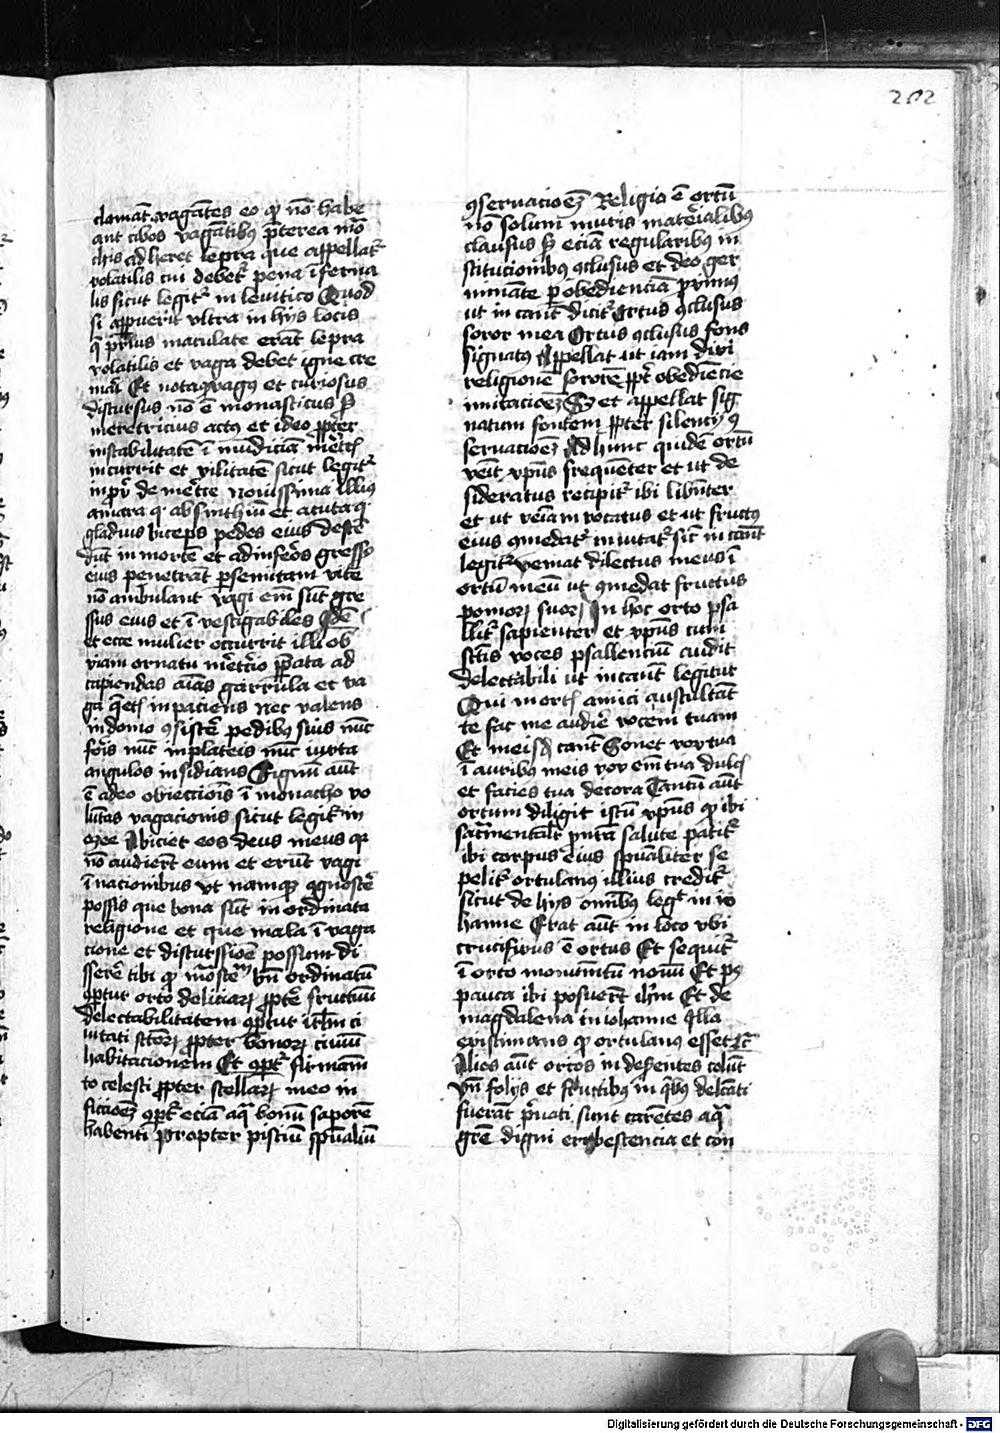 202
clamāt vagātes eo qꝫ nō habe
ant cibos vagātibꝫ p̄terea mo
chis adheret lepra que appellat᷑
volatilis cui debet᷑ pena īferna
lis sicut legit᷑ in levitico Quod
si appuerit vltra in hijs locis
q̄ prius maculate erāt lepra
volatilis et vaga debet igne cre
mari Et nota vagꝰ et curiosus
discursus nō ē monasticus sꝫ
meretricius actꝰ et ideo ꝓpter
instabilitatē ī mūdiciā
incurrit et vilitatē sicut legit᷑
de novissima illiuꝰ
amara qͣ absinthiū et acuta qͣ
gladius biceps pedes eius desce
dūt in mortē et ad inferos gressꝰ
eius penetrāt p semitam vite
nō ambulant vagi em̄ sūt gre
ssus eius et ī vestigabiles Idē
et ecce mulier occurrit illi ob
viam ornatu m̄etcio p̄pata ad
capiendas aīas garrula et va
ga inpaciens nec valens
in domo ꝯsistē pedibꝫ suis nūc
foris nūc in plateis nūc iuxta
angulos insidians Signū aūt
ē adeo obiectiois ī monacho vo
lūtas vagacionis sicut legit᷑ in
ozee Abiciet eos deus meus qꝫ
nō audierūt eum et erūt vagi
ī nacionibus vt namqꝫ ꝯgnoscē
possis que bona sūt in ordinata
religione et que mala ī vaga
cione et discussioē possum di
sserē tibi qꝫ bn̄ ordinatū
ꝯptur orto deliciaꝝ ꝓpt᷑ fructuū
delectabilitatem ꝯptur ci
uitati sctoꝝ ꝓpter bonoꝝ ciuiū
habitacionem Et ꝯpt᷑ firmam̄
to celesti ꝓpter stellaꝝ meo in
ficioeꝫ ꝯpt᷑ eciā aq̄ bonū saporē
habenti Propter pisciū spūaliū
ꝯseruacioeꝫ Religio ē ortū
nō solum muris materialibꝫ
clausus sꝫ eciā regularibꝫ in
stitucionibus ꝯclusus et deo ger
minate p obedienciā primus
ut in cant̄ dicit᷑ Ortus ꝯclusus
soror mea Ortus ꝯclusus fons
signatꝰ Appellat ut iam dixi
religionē sororē ꝓpt᷑ obediēcie
imitacioeꝫ Sꝫ et appellat sig
natum fontem ꝓpter silencij ꝯ
seruacioeꝫ Ad hunc quidē ortū
venit xp̄us frequēter et ut de
sideratus recipit᷑ ibi libēter
et ut vocatus et ut fructꝰ
eius ꝯmedat᷑ inuitat᷑ sic̄ in cant̄
legit᷑ veniat dilectus meus ī
ortū meū ut ꝯmedat fructus
pomoꝝ suoꝝ In hoc orto psa
llit᷑ sapienter et xp̄us cum
sctīs voces psallenciū audit
delectabili ut in cant̄ legitur
Qui in ort amici auscultāt
te fac me audire vocem tuam
Et meisꝫ cant̄ Sonet vox tua
ī auribus meis vox em̄ tua dulcꝭ
et facies tua decora Tantū aūt
ortum diligit istū xp̄us qꝫ ibi
sacͣmentalit᷑ salute patit᷑
ibi corpus eius spūaliter se
pelit᷑ ortulanus illius credit᷑
sicut de hijs omībꝫ legt᷑ in io
hanne Erat aūt in loco vbi
crucifixus ē ortus Et sequit᷑
ī orto monumētū nouū Et pꝰ
pauca ibi posuerūt ihm̄ Et de
magdalena in iohanne Illa
existimans qꝫ ortulanus esset ꝛc̄
Alios aūt ortos in decentes colūt
Vn̄ folijs et fructibus in qͥbꝫ delcāti
fuerāt priuati sunt carētes aqͣ
gr̄e digni erubescencia et con
Digitalisierung gefördert durch die Deutsche Forschungsgemeinschaft - DFG